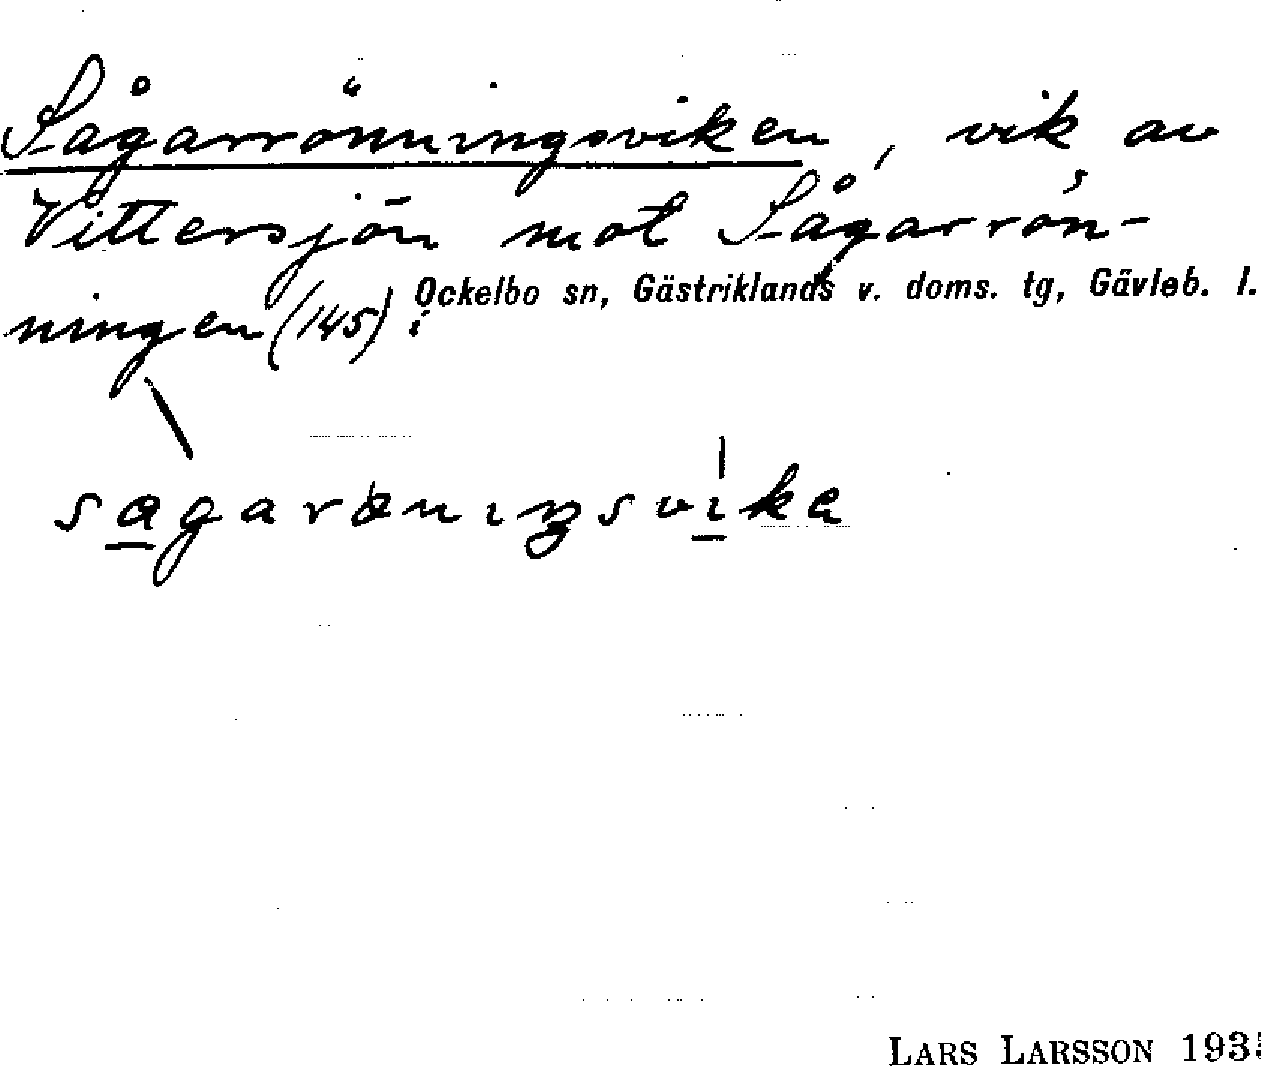 Sågarrönningsviken, vik av
Vittersjön mot Sågarrön-
ningen (145) i Ockelbo sn, Gästriklands v. doms. tg, Gävleb. l.
LARS LARSSON 193